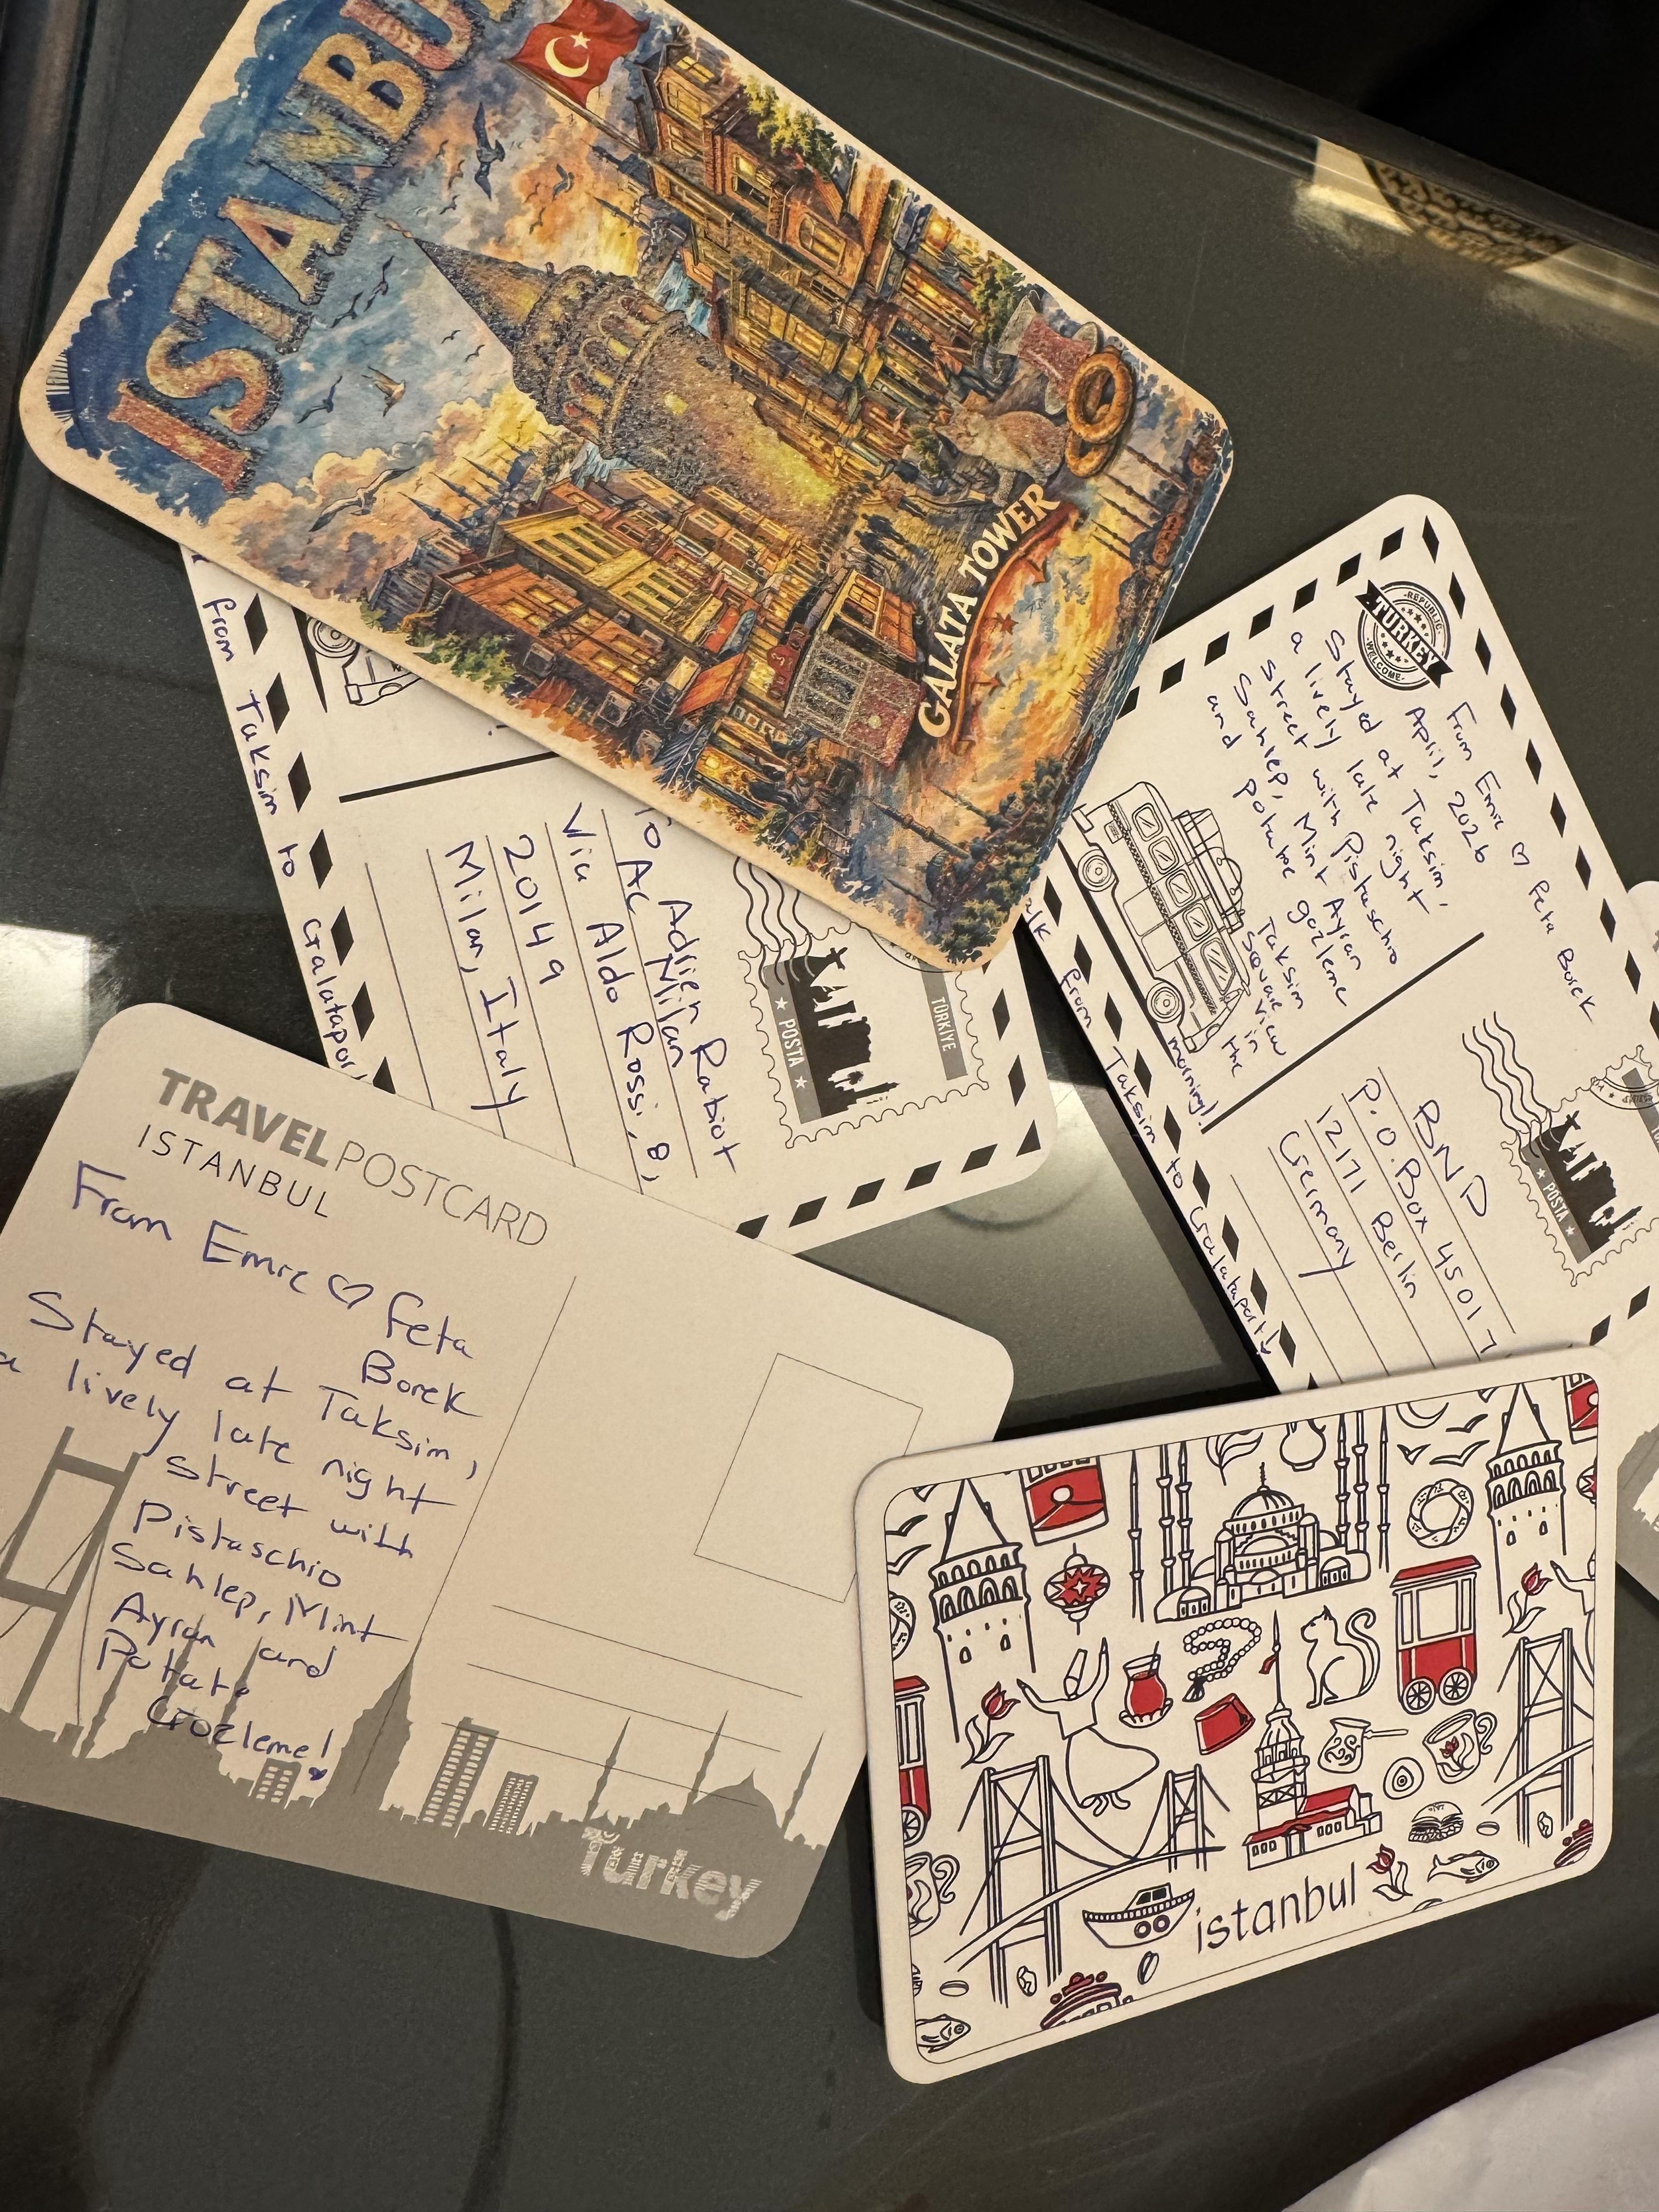 ISTANBU
GALATA TOWER
From Taksim to Galatapor
To Adrien Rabiot
AC Milan
Via Aldo Rossi, 8,
20149
Milan, Italy
★ POSTA ★
TÜRKİYE
REPUBLIC
TURKEY
WELCOME
From Emre ♡ Feta Borek
April, 2026
Stayed at Taksim,
a lively late night
street with Pistaschio
Sahlep, Mint Ayran
and potatoe gozleme
Taksim
Square view
in the
morning!
alk from Taksim to Galataport!
BND
P.O.Box 45017
12171 Berlin
Germany
★ POSTA ★
TRAVELPOSTCARD
ISTANBUL
From Emre ♡ feta
Borek
Stayed at Taksim,
a lively late night
street with
Pistaschio
Sahlep, Mint
Ayran and
Potato
Gozleme!
Turkey
istanbul